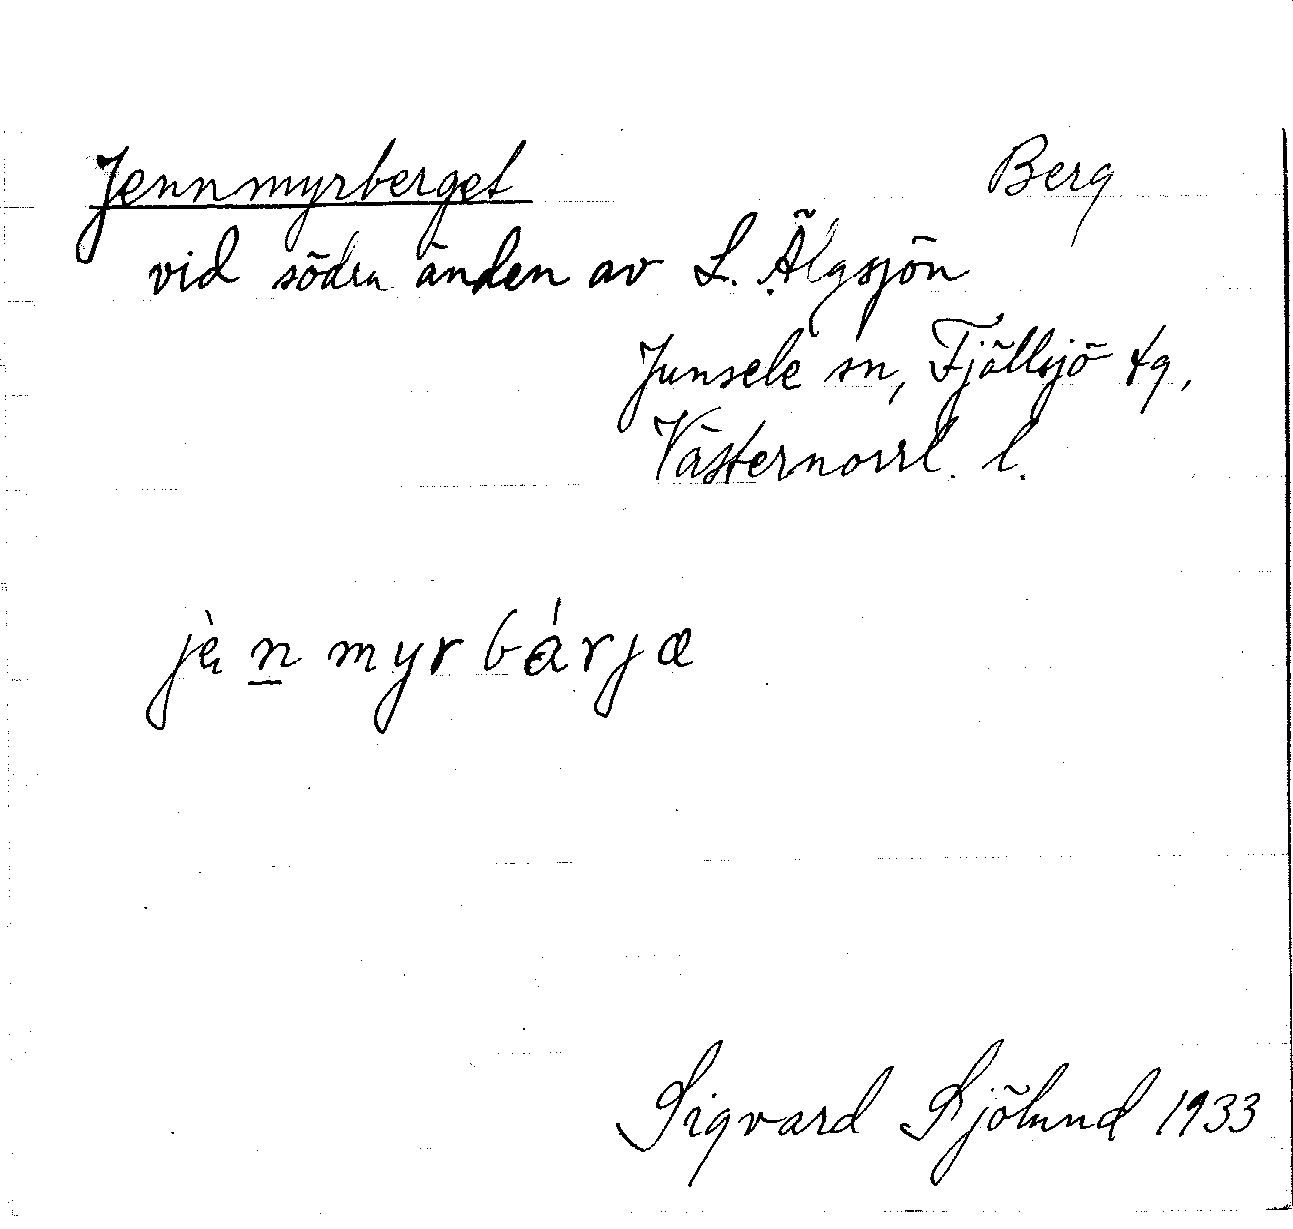 Jennmyrberget Berg
vid södra änden av L. Älgsjön
Junsele sn, Fjällsjö tg,
Västernorrl. l.
jèn̲myrbárjæ
Sigvard Sjölund 1933